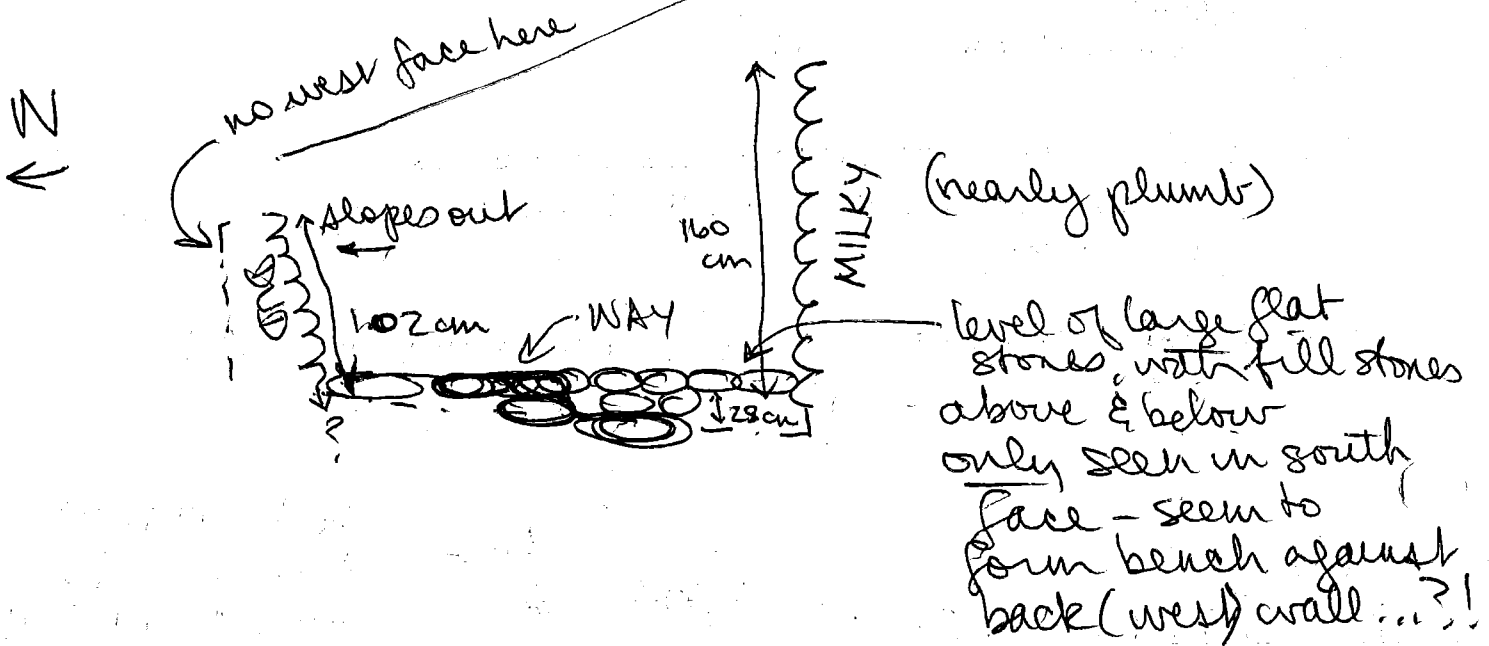 no west face here
N
slopes out
160
cm
MILKY
(nearly plumb)
1.02 cm
WAY
28 cm
?
level of large flat
stones, with fill stones
above & below
only seen in south
face – seem to
form bench against
back (west) wall...?!